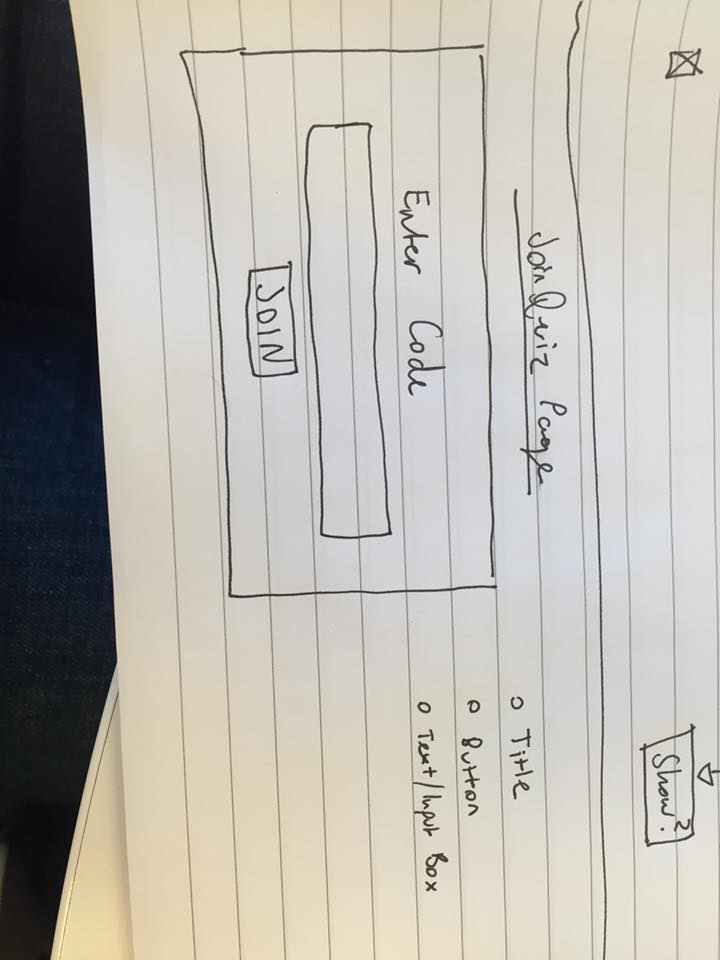 Show?
Join Quiz Page
Enter Code
JOIN
Title
Button
Text/Input Box